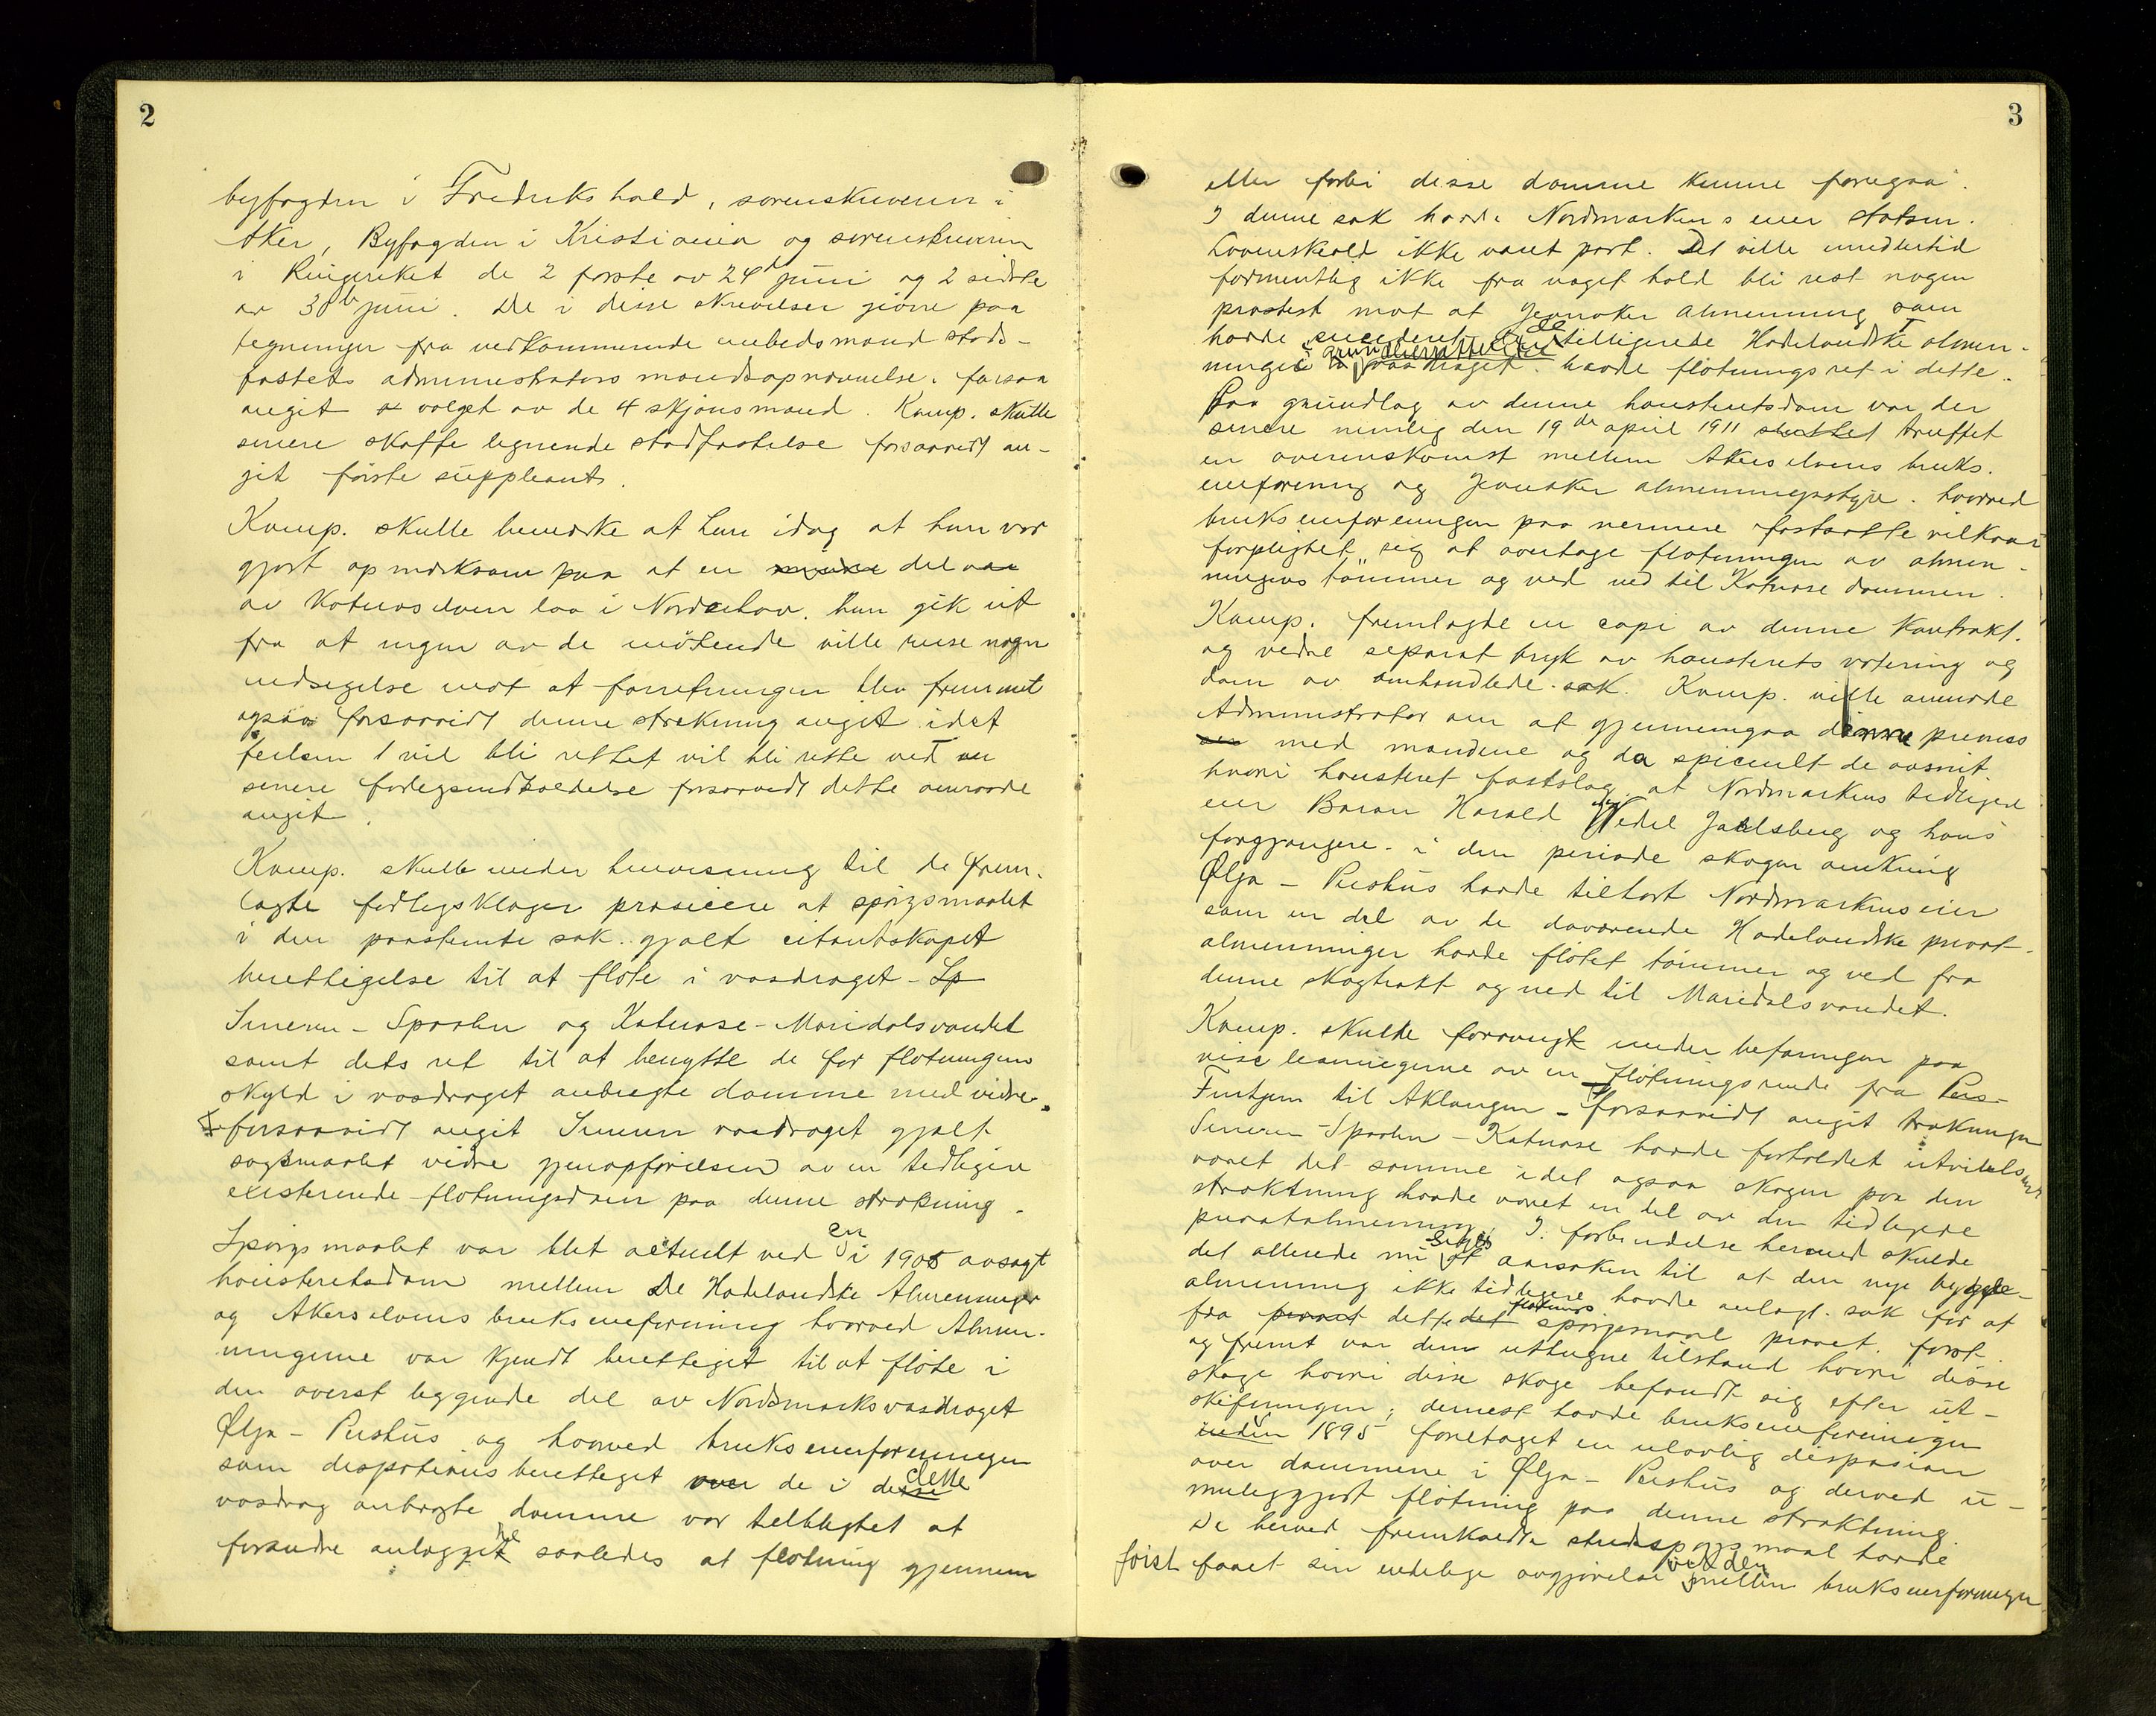 2
byfogden i Fredrikshald, sorenskriveren i
Aker, Byfogden i Kristiania og sorenskriveren
i Ringeriket de 2 første av 24de juni og 2 sidste
av 30te juni. De i disse skrivelser givne paa
tegninger fra vedkommende embedsmand stad-
fæstets administrators mandsopnævnelse. forsaa
angik valget av de 4 skjønsmænd. Komp. skulle
senere skaffe lignende stadfæstelse forsaavidt an-
gik første suppleant.
Komp. skulle bemerke at han idag at han var
gjort opmerksom paa at en del
av Katnoselven laa i Norderhov. han gik ut
fra at ingen av de møtende ville reise nogen
indsigelse mot at forretningen blev fremmet
ogsaa forsaavidt denne strekning angik idet
feilen vil bli rettet vil bli rette ved en
senere forlegsindkaldelse forsaavidt dette omraade
angik.
Komp. skulle under henvisning til de frem-
lagte forligsklager præsicere at spørgsmaalet
i den paastemte sak gjalt citantskapet
berettigelse til at fløte i vasdraget - Sp
Sinneren - Spaalen og Katnose - Maridalsvandet
samt dets ret til at benytte de for fløtningens
skyld i vasdraget anbragte damme med videre.
forsaavidt angik Sinneren vasdraget gjalt
søgsmaalet videre gjenopførelsen av en tidligere
existerende fløtningsdam paa denne strækning.
Spørgsmaalet var blet actuelt ved en i 1905 avsagt
høiesteretsdom mellem De Hadelandske Almenninger
og Akerselvens bruksenerforening hvorved Almen-
ningene var kjendt berettiget til at fløte i
den øverst liggende del av Nordmarksvasdraget
Ølja - Pershus og hvorved bruksenerforeningen
som despotionsberettiget over de i desse dette
vasdrag anbragte damme var tilpligtet at
forandre anlægget saaledes at fløtning gjennem
3
eller forbi disse damme kunne foregaa.
I denne sak havde Nordmarkens eier statsm.
Løvenskiold ikke været part. Det ville imidlertid
formentlig ikke fra noget hold bli reist nogen
protest mot at Jevnaker almenning som
havde succederet de tilliggende Hadelandske almen-
ninger i vasdraget havde fløtningsret i dette.
Paa grundlag av denne høiesteretsdom var der
senere nemlig den 19de april 1911 sluttet truffet
en overenskomst mellem Akerselvens bruks-
enerforening og Jevnaker almenningsstyre. hvorved
bruksenerforeningen paa nermere fastsatte vilkaar
forpligtet sig at overtage fløtningen av almen-
ningens tømmer og ved ned til Katnose dammen.
Komp. fremlagde en copi av denne kontrakt.
og vedl separat tryk av høiesterets votering og
dom av omhandlede sak. Komp. ville anmode
Administrator om at gjennemgaa denne premiss
med mændene og da specielt de avsnit
hvori høiesteret fastslog at Nordmarkens tidligere
eier Baron Harald Wedel Jarlsberg og hans
forgjængere i den periode skogen omkring
Ølja - Pershus havde tilhørt Nordmarkens eier
som en del av de daværende Hadelandske privat-
almenninger havde fløtet tømmer og ved fra
denne skogtrakt og ned til Maridalsvandet.
Komp. skulde forøvrigt under befaringen paa
vise levningerne av en fløtningsrende fra Pers-
Fintjern til Aklangen - forsaavidt angik trækningen
Sinneren - Spaalen - Katnose havde forholdet utvilsomt
været det samme idet ogsaa skogen paa den
strækning havde været en del av den tidligere
privatalmenning. I forbindelse hermed skulde
det allerede nu siges at aarsaken til at den nye bygde-
almenning ikke tidligere havde anlagt sak for at
fra privat dette det fløtnings spørgsmaal prøvet. først
og fremst var den uthugne tilstand hvori disse
skoge hvori disse skoge befandt sig efter ut-
skiftningen; dernest havde bruksenerforeningen
inden 1895 foretaget en ulovlig disposion
over dammene i Ølja - Pershus og derved u-
muliggjort fløtning paa denne strækning
De herved fremkaldte stridsspørgsmaal havde
først faaet sin endelige avgjørelse ved den mellem bruksenerforeningen